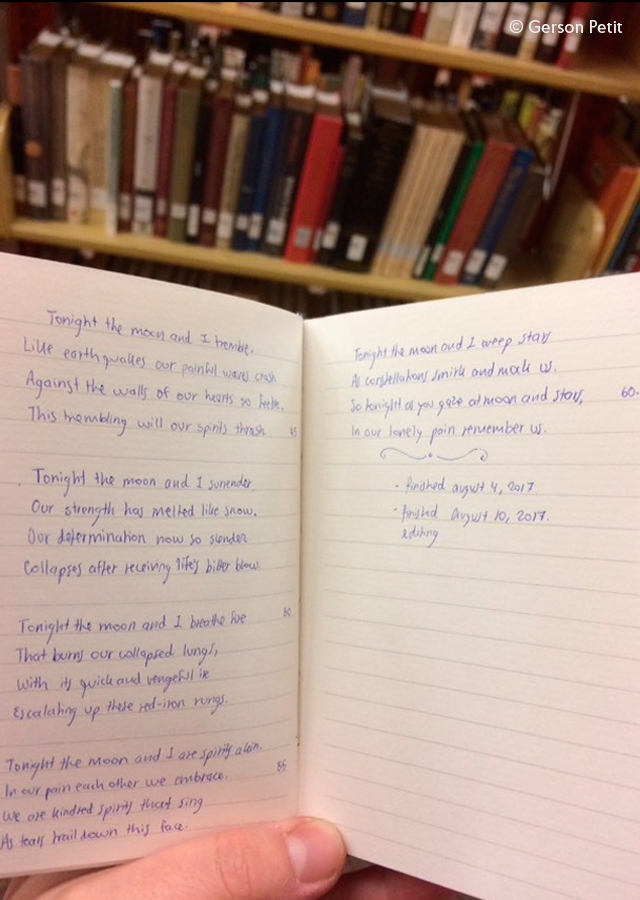 © Gerson Petit
Tonight the moon and I tremble.
Like earthquakes our painful waves crash
Against the walls of our hearts so feeble.
This trembling will our spirits thrash 45
Tonight the moon and I surrender.
Our strength has melted like snow.
Our determination now so slender
Collapses after receiving life's bitter blow.
Tonight the moon and I breathe fire 50
That burns our collapsed lungs,
With its quick and vengeful ire
Escalating up these red-iron rungs.
Tonight the moon and I are spirits akin.
In our pain each other we embrace. 55
We are kindred spirits that sing
As tears trail down this face.
Tonight the moon and I weep stars
As constellations smirk and mock us.
So tonight as you gaze at moon and stars, 60.
In our lonely pain remember us.
- finished august 4, 2017
- finished august 10, 2017.
editing